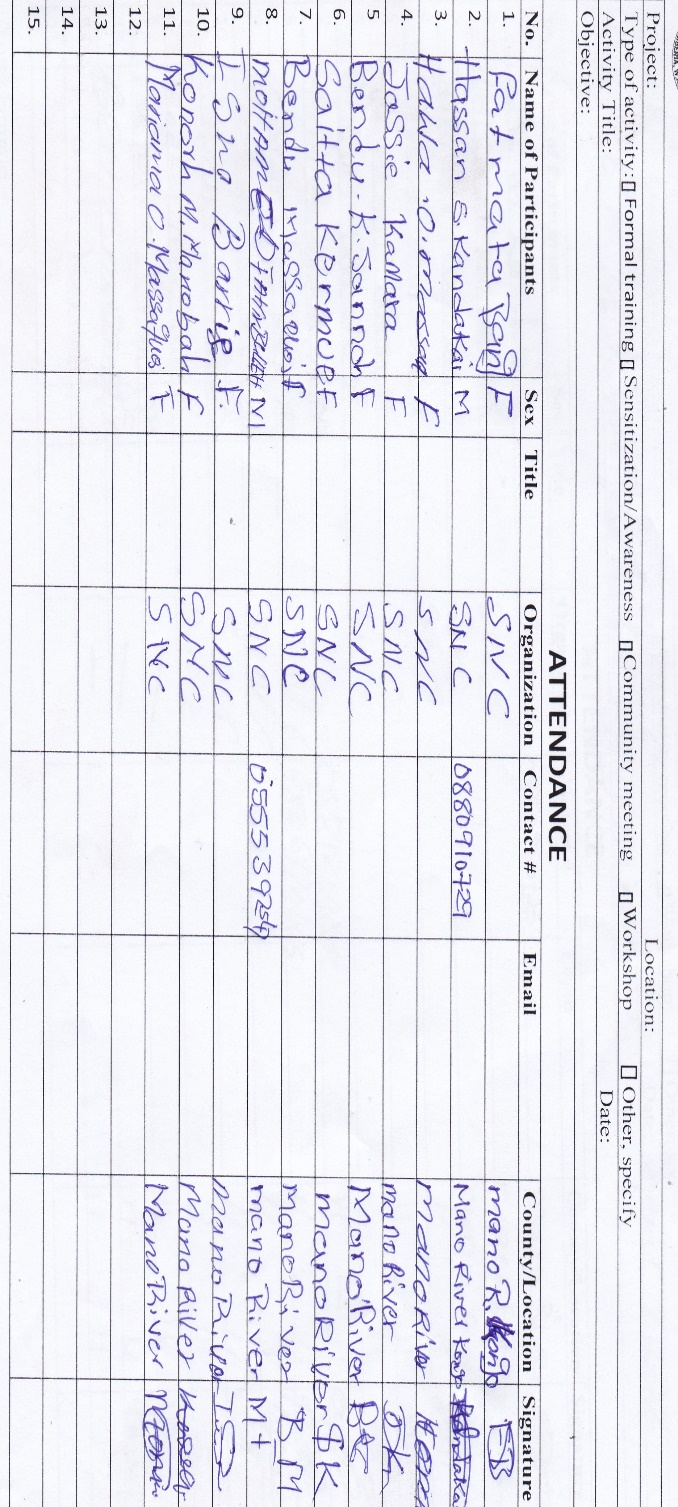 Project: Location:
Type of activity: Formal training Sensitization/Awareness Community meeting Workshop Other, specify
Activity Title: Date:
Objective:
ATTENDANCE
No. Name of Participants Sex Title Organization Contact # Email County/Location Signature
1. Fatmata F SNC mano R. FB
2. Hassan S Kandakai M SNC 0880910729 Mano River Kongo
3. Hawa .O. F SNC mano River
4. Jessie Kamara F SNC mano River JK
5 Bendu. K. Jannah F SNC Mano River
6. Saitta F SNC mano River SK
7. Bendu Massaquoi F SNC Mano River B M
8. MOHAMED M SNC mano River M
9. Barrie F. SNC mano River
10. M. Manobah F SNC Mano River
11. Mariama O Massaquoi F SNC Mano River
12.
13.
14.
15.